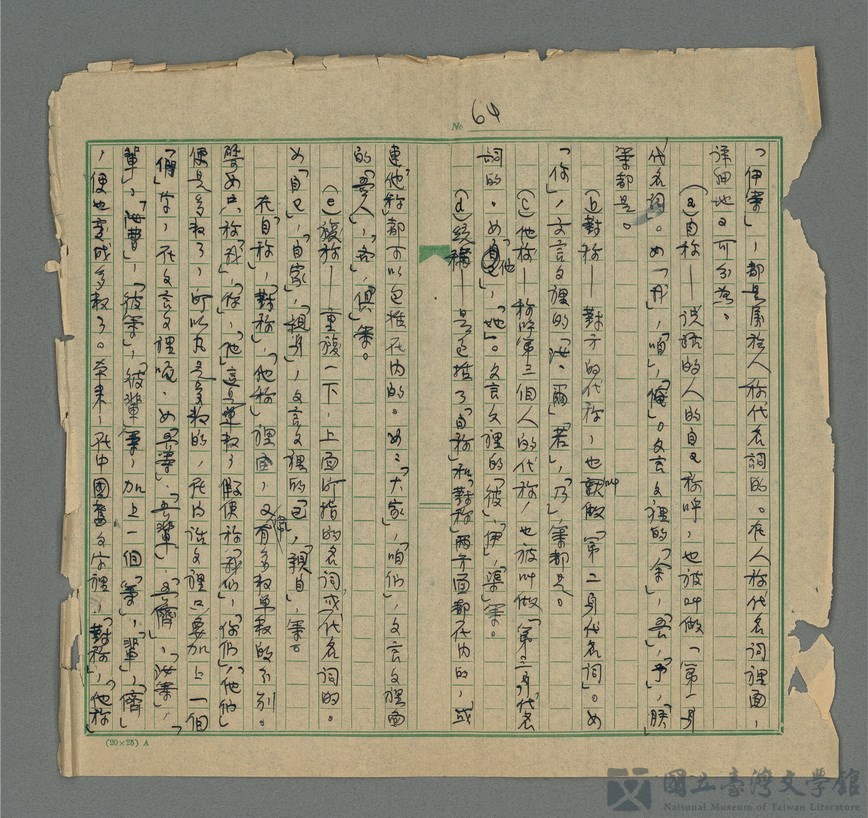 No 64
「伊等」，都是屬於人称代名詞的。在人称代名詞裡面，
詳細地又可分為。
(a)自称—說話的人的自己称呼，也被叫做「第一身
代名詞」。如「我」，「咱」，「俺」。文言文裡的「余」，「吾」，「予」，「朕」
等都是。
(b)對称—對方的代称，也叫做「第二身代名詞」。如
「你」，文言文裡的「汝，爾」「若」，「乃」，等都是。
(c)他称—称呼第三個人的代称，也被叫做「第三身代名
詞的。如「他」，「她」。文言文裡的「彼」，「伊」，「渠」等。
(d)統稱—是包括了「自称」和「對称」兩方面都在內的，或
連「他称」都可以包括在內的。如：「大家」，「咱们」，文言文裡面
的「吾人」，「各」，「俱」等。
(e)複称—重複一下，上面所指的名詞或代名詞的。
如「自己」，「自家」，「親身」，文言文裡的「己」，「親自」，等。
在「自称」，「對称」，「他称」裡面，又有多数單数的分別。
譬如只称「我」，「你」，「他」這是單数，假使称「我们」，「你们」，「他们」
便是多数了，所以凡是多数的，在白話文裡只要加上一個
「們」字，在文言文裡呢，如「吾等」，「吾輩」，「吾儕」，「汝等」，「
輩」，「汝曹」，「彼等」，「彼輩」等，加上一個「等」，「輩」，「儕」
，便也变成多数了。本来，在中國舊文字裡，「對称」，「他称」
(20×25) A
國立臺灣文學館
National Museum of Taiwan Literature